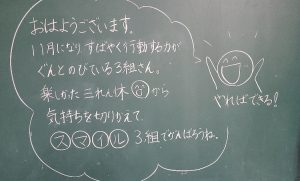 おはようございます。
11月になり すばやく行動する力が
ぐんとのびている3組さん。
楽しかった三れん休から
気持ちを切りかえて
スマイル 3組でがんばろうね。
やればできる!